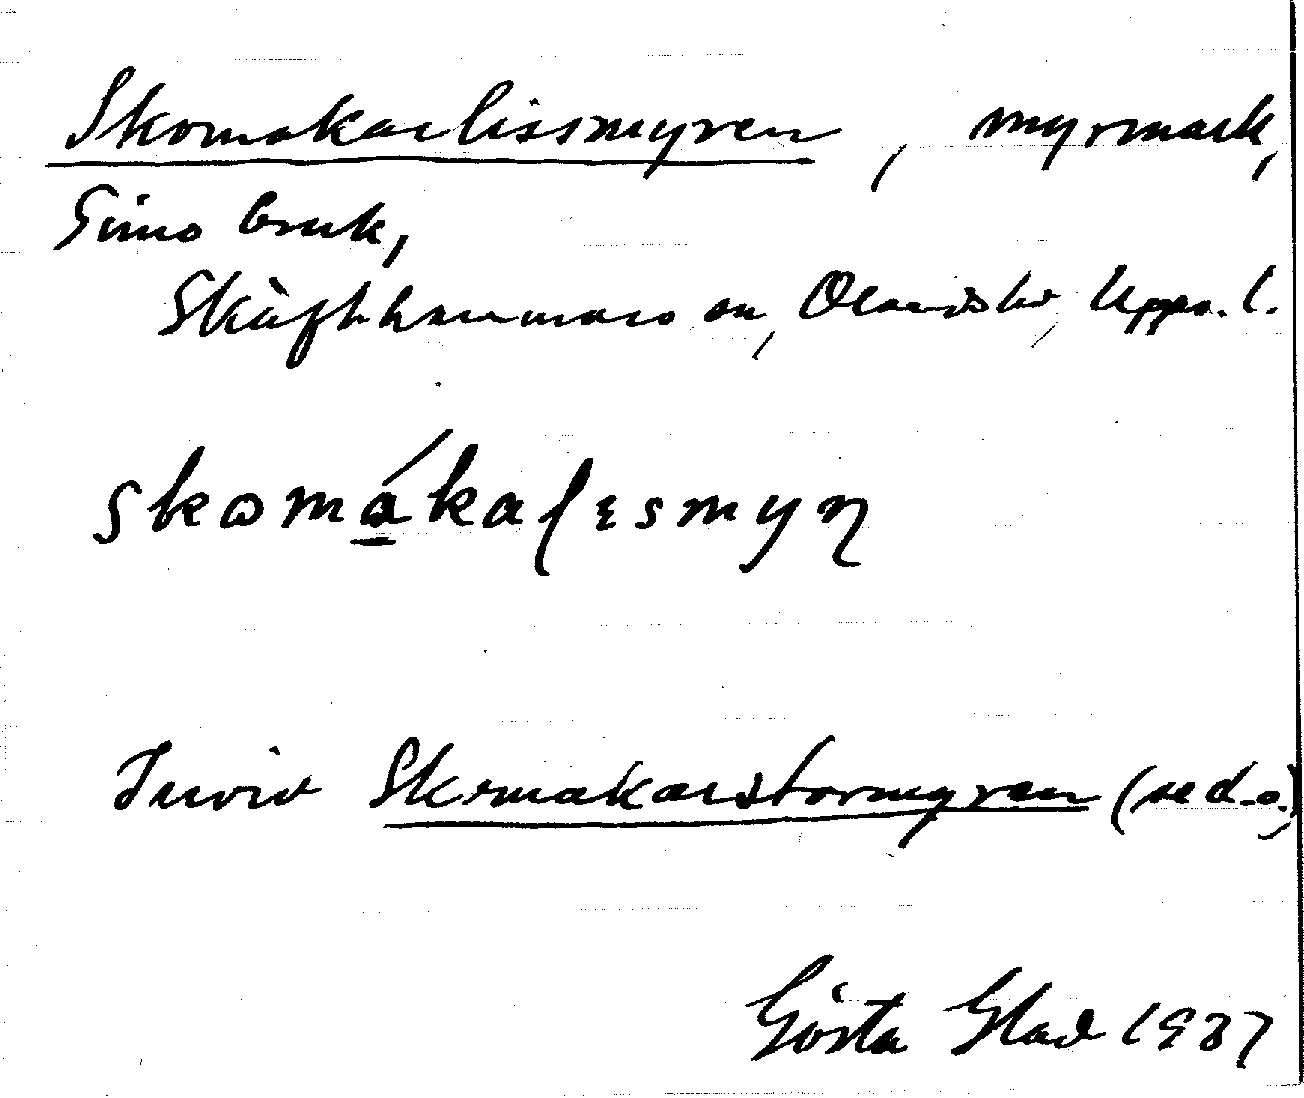 Skomakarlissmyren, myrmark,
Gimo bruk,
Skäfthammars sn, Olands hd, Upps. l.
skomákalɩsmyn
Invid Skomakarstormyren (se d.o.)
Gösta Glad 1937